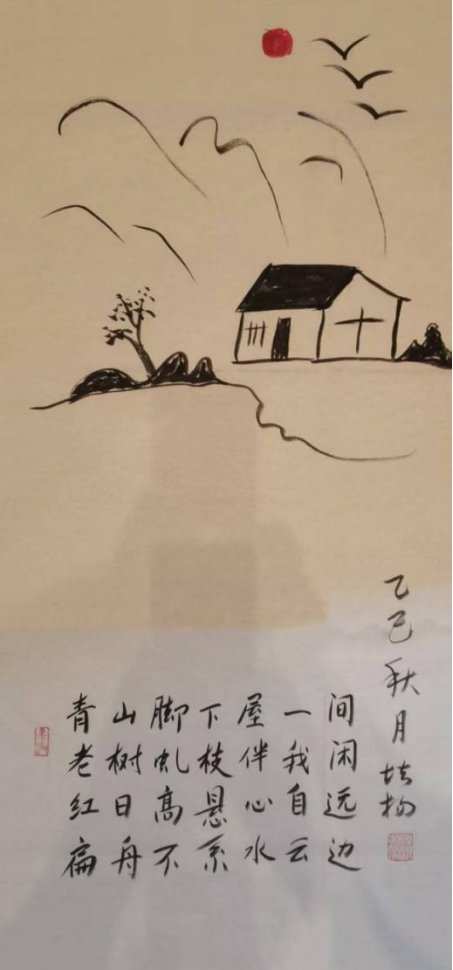 青山脚下屋一间
老树虬枝伴我闲
红日高悬心自远
扁舟不系水云边
乙巳秋月